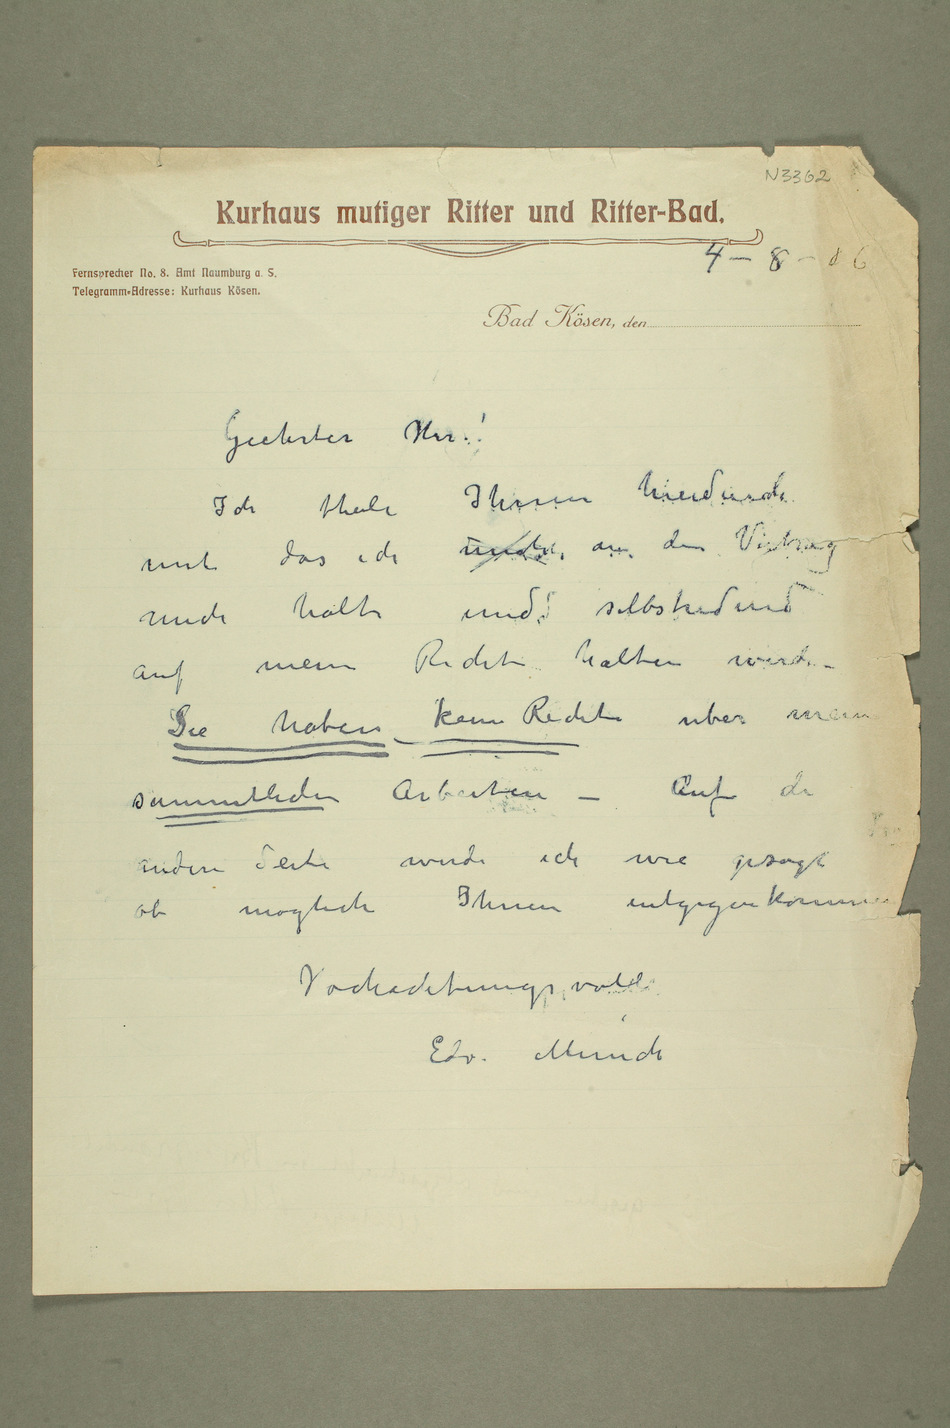 N3362
Kurhaus mutiger Ritter und Ritter-Bad.
4 – 8 – 06
Fernsprecher No. 8. Amt Naumburg a. S.
Telegramm-Adresse: Kurhaus Kösen.
Bad Kösen, den
Geehrter Herr!
Ich theile Ihnen hierdurch
mit das ich an den Vertrag
mich halte und selbstredend
auf mein Recht halten werde –
Sie haben kein Recht uber mein
sammtlichen Arbeiten – Auf de
andere Seite werde ich wie gesagt
ob moglich Ihnen entgegenkommen
Vochachtungsvoll
Edv. Munch